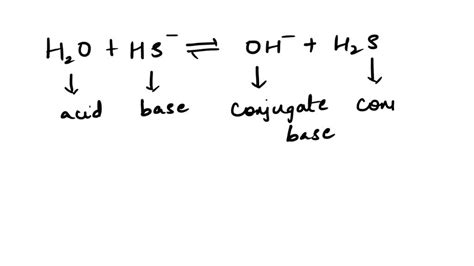 H₂O + HS⁻ ⇌ OH⁻ + H₂S
↓ ↓ ↓ ↓
acid base conjugate con
base